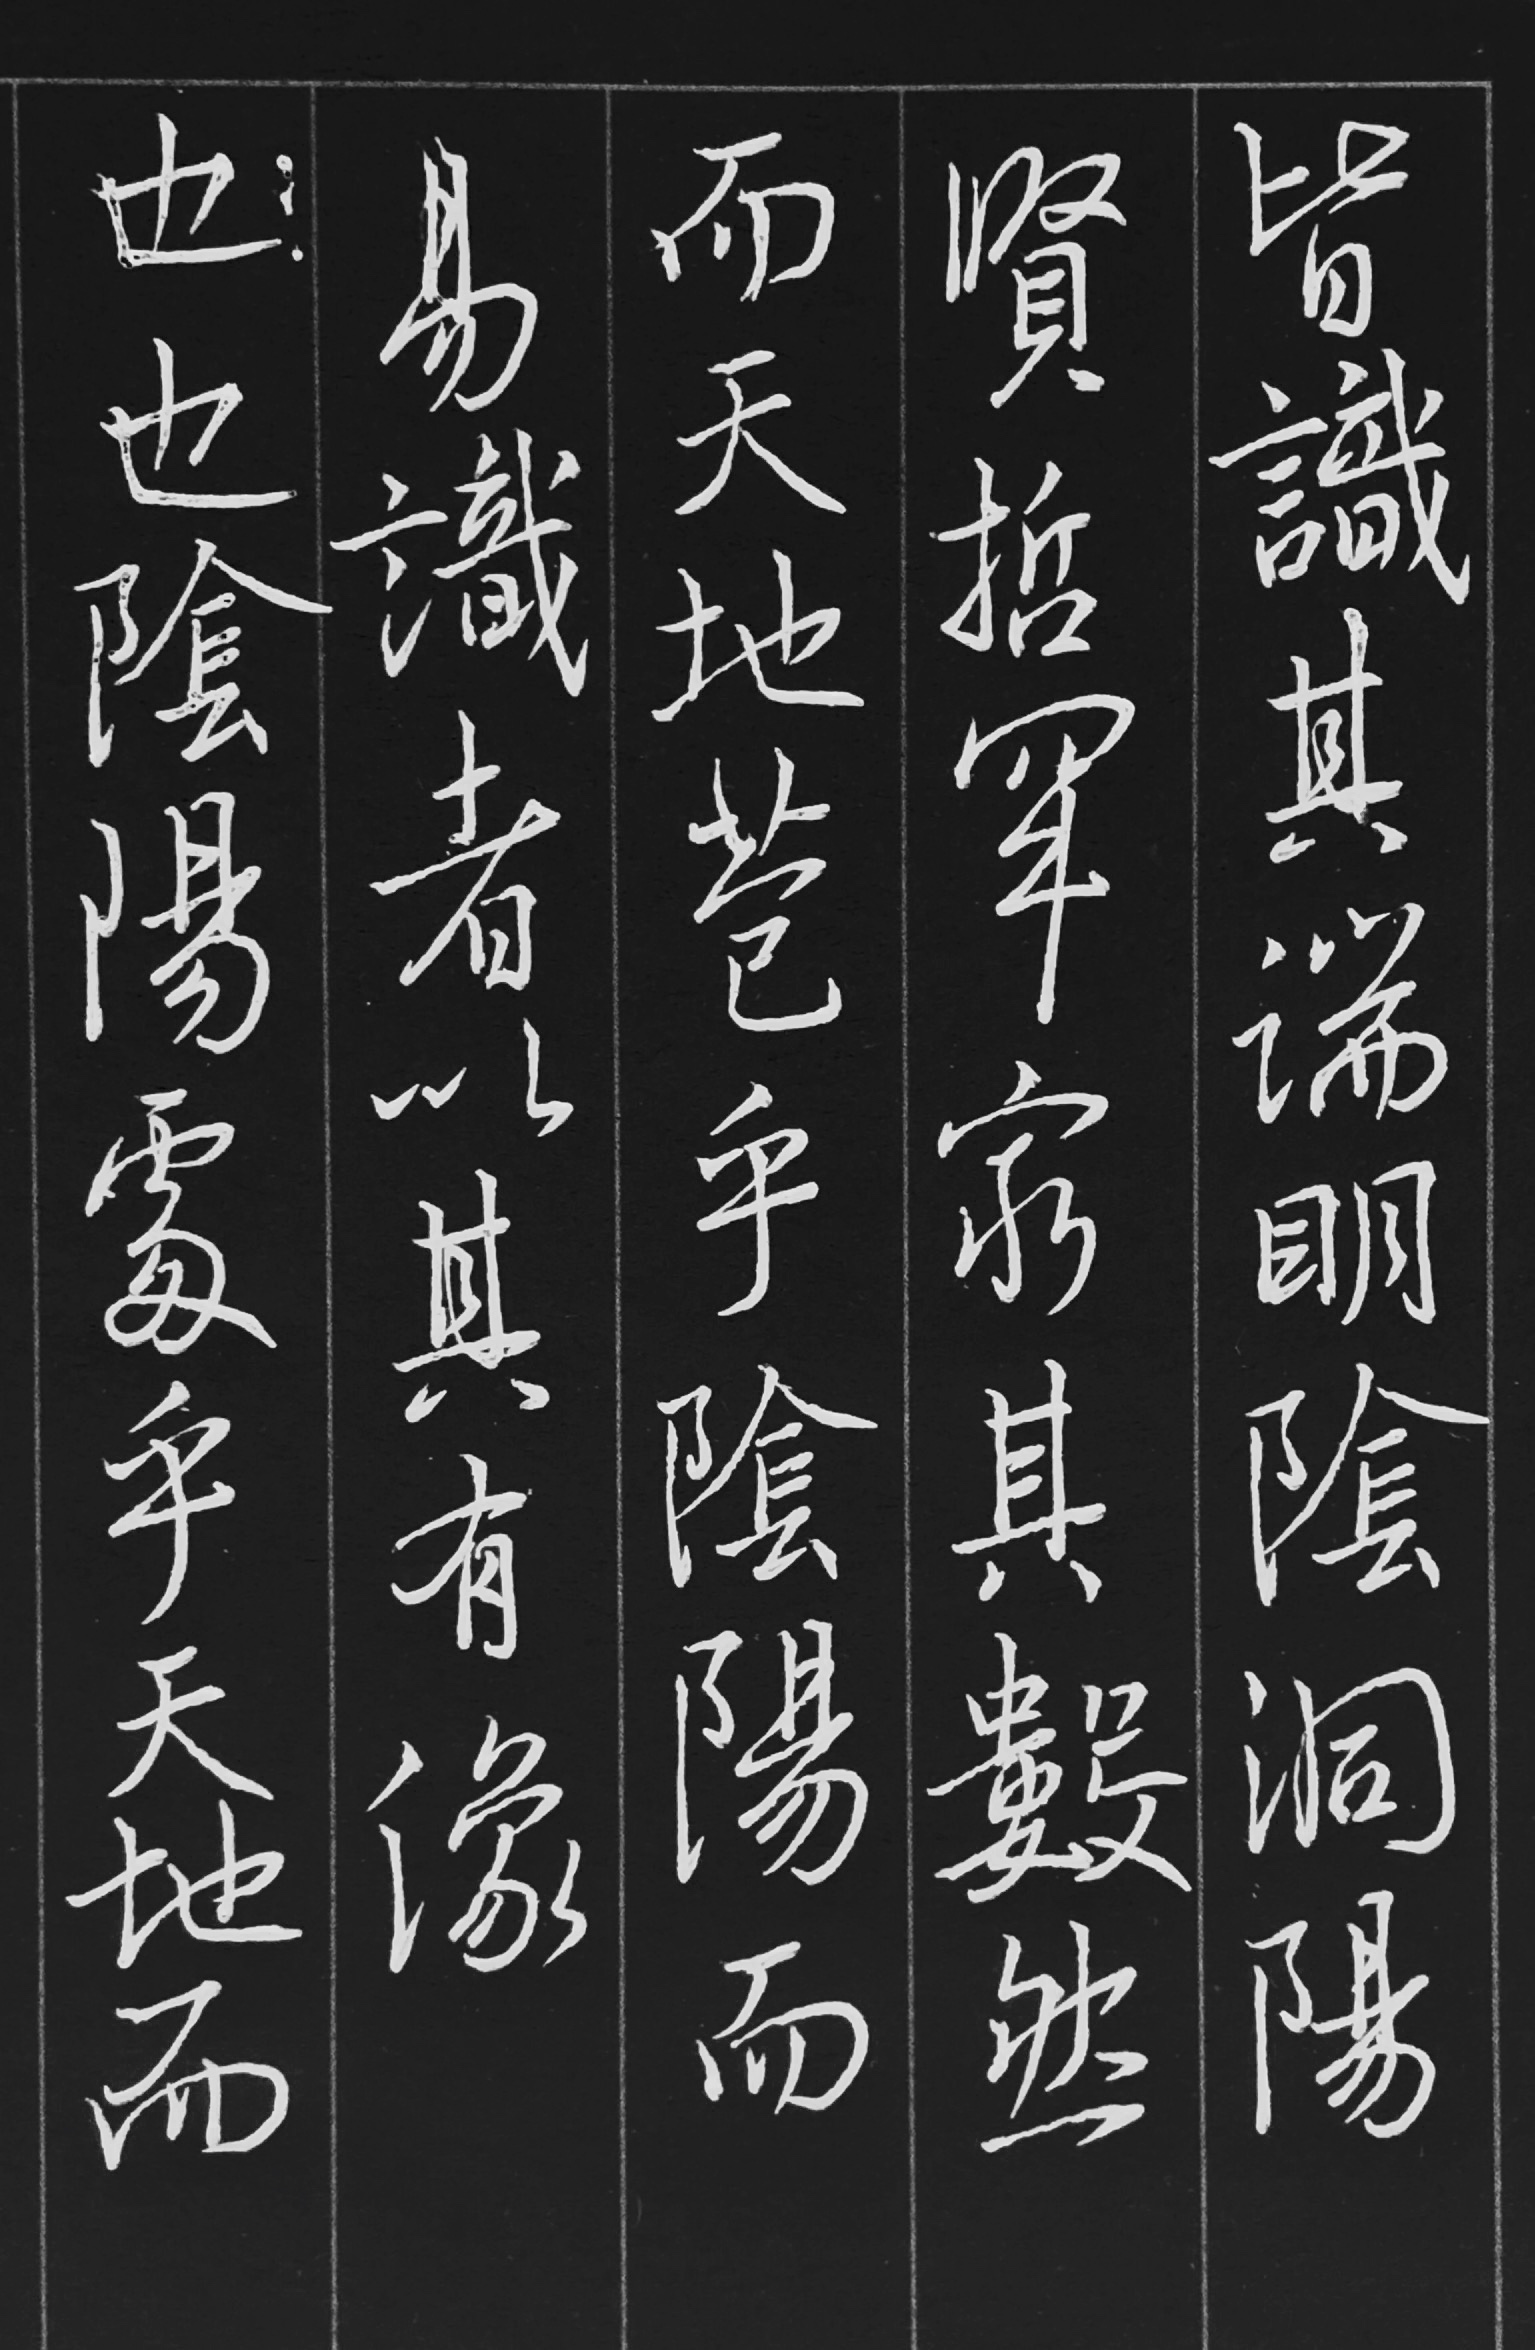 皆識其端明陰洞陽
賢哲罕窮其數然
而天地苞乎陰陽而
易識者以其有像
也也陰陽處乎天地而